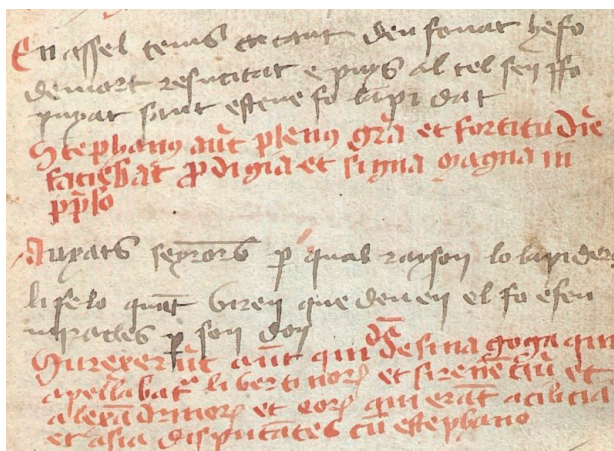 En aqel tems etant deu fo nat hefo
de mort resucitat e puys al cel sen
puyat sant esteve fo lapidat
Stephanus aut plenus gra et fortitudie
faciebat prodigia et signa magna in
pplo
Auyats seyrors p qual rayson lo lapider
li felo quat viren que deu en el fo e feu
miracles p son don
Surexerut aut quida de sinagoga qui
apellabat libertinor et sirenesiu et
alexadrinor et eor qui erat a cilicia
et asia disputates cu estephano